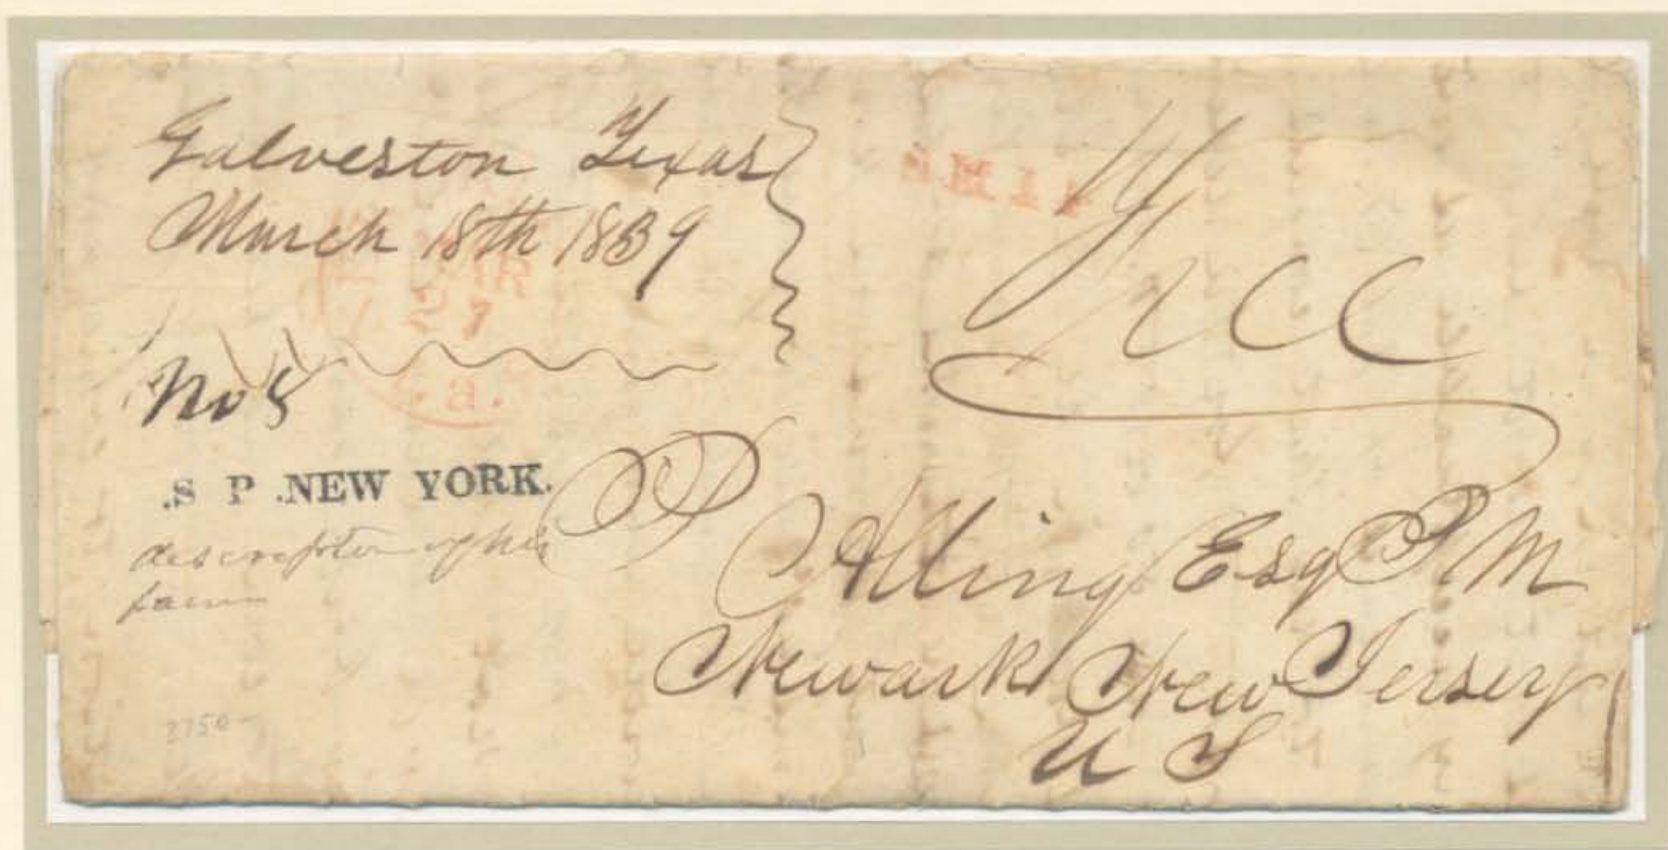 Galveston Texas
March 18th 1839
SHIP
Free
MAR
27
La.
No 8
.S P .NEW YORK.
description of the
farm
P Alling Esq P M
Newark New Jersey
U S
2750